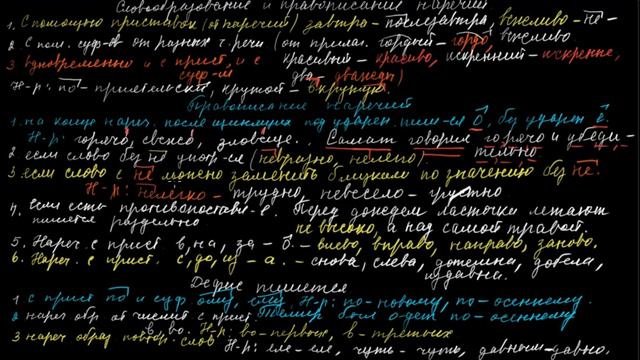 Словообразование и правописание наречий
1. С помощью приставок (от наречий) завтра - послезавтра, вежливо - не-
вежливо
2. С пом. суф-ов от разных ч. речи (от прилаг. гордый - гордо,
красивый - красиво, искренний - искренне,
два - дважды)
3 одновременно и с прист, и с
суф-ом
Н-р: по-приятельски, крутой - вкрутую
Правописание наречий
1. на конце нареч. после шипящих под ударен. пиш-ся о, без ударен е.
Н-р: горячо, свежо, зловеще. Самат говорил горячо и убеди-
тельно
2 если слово без не употр-ся (невзрачно, нелепо)
3 если слово с не можно заменить близким по значению без не.
Н-р: нелегко - трудно, невесело - грустно
4. Если есть противопоставл-е. Перед дождем ласточки летают
пишется раздельно не высоко, а над самой травой.
5. Нареч. с прист в, на, за - о. - влево, вправо, направо, заново.
6. Нареч. с прист. с, до, из - а. - снова, слева, дотемна, добела,
издавна.
Дефис пишется
1 с прист по и суф ому, ему. Н-р: по-новому, по-осеннему.
2 нареч обр от числит с прист Темир был одет по-осеннему
в, во. Н-р: во-первых, в-третьих
3 нареч образ повтор. слов
Н-р: еле-еле, чуть-чуть, давным-давно.